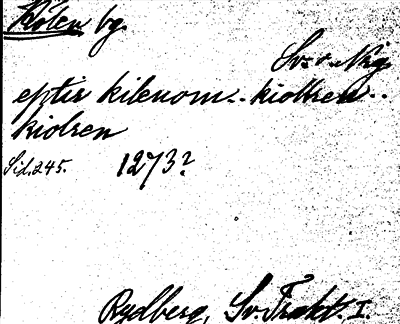 Kölen bg
Sv. o. Nrg
eptir kilenom.. kiolltren..
kiolren
Sid. 245. 1273?
Rydberg, Sv. Trakt. I.